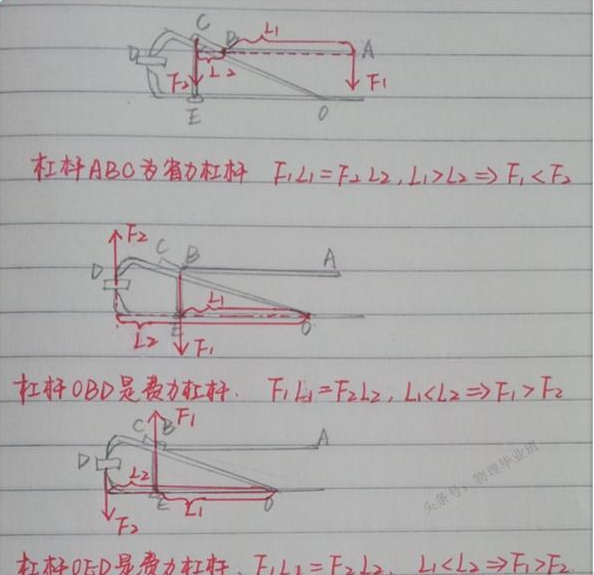 C
L₁
D
B
A
F₂
L₂
F₁
E
O
杠杆ABC为省力杠杆 F₁L₁=F₂L₂, L₁>L₂⇒F₁<F₂
F₂
C
B
A
D
L₁
E
O
L₂
F₁
杠杆OBD是费力杠杆. F₁L₁=F₂L₂, L₁<L₂⇒F₁>F₂
F₁
C
B
A
D
L₂
E
L₁
O
F₂
头条号：物理毕业班
杠杆OED是费力杠杆. F₁L₁=F₂L₂, L₁<L₂⇒F₁>F₂.